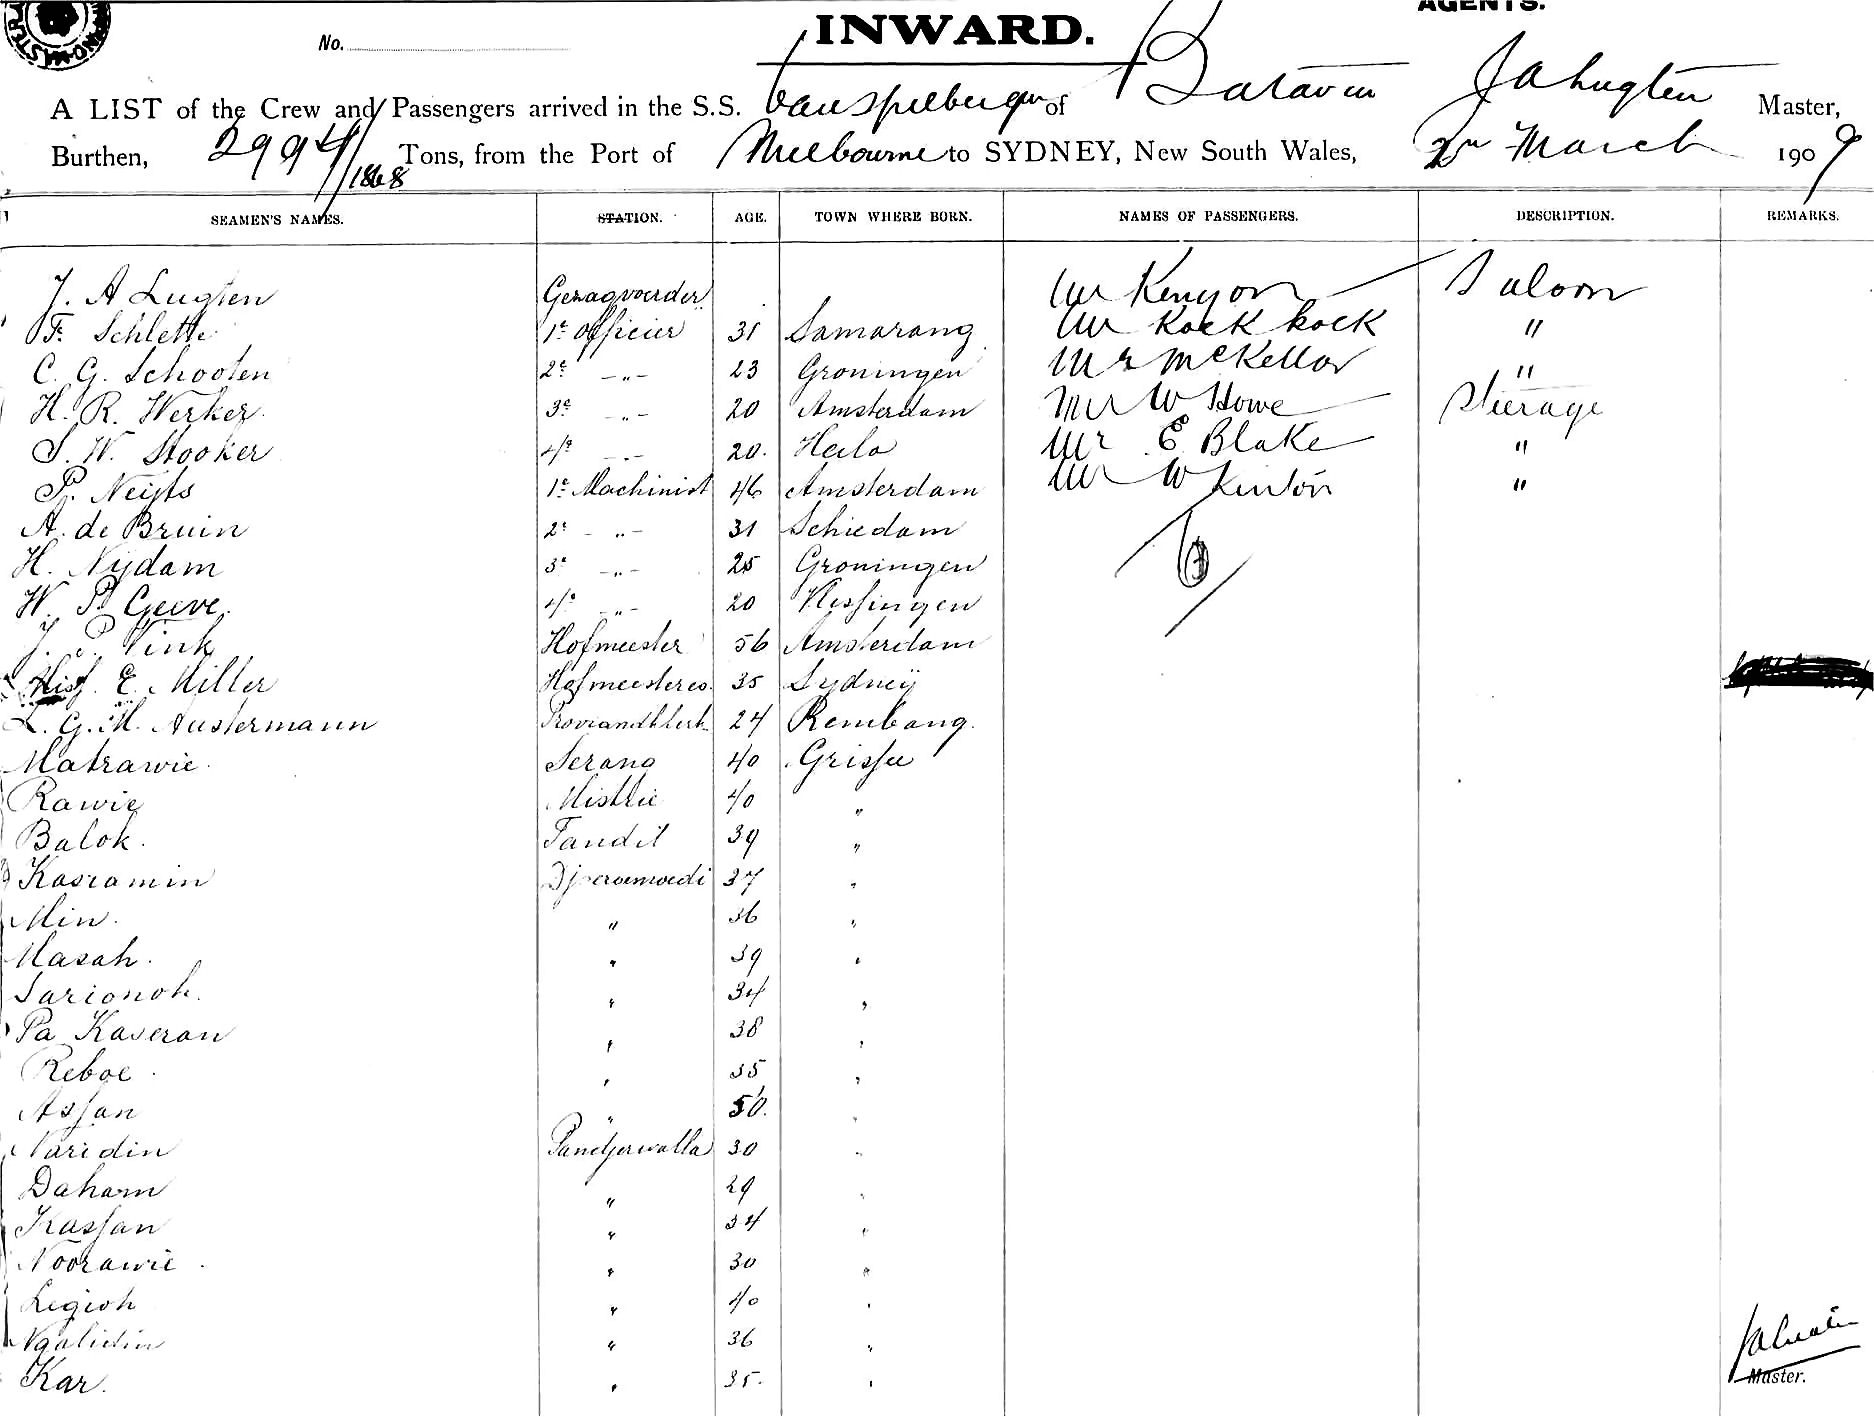 AGENTS.
No.
INWARD.
A LIST of the Crew and Passengers arrived in the S.S. Van Spilbergen of Batavia J A Lugten Master,
Burthen, 2994/1868 Tons, from the Port of Melbourne to SYDNEY, New South Wales, 2n March 1909
SEAMEN'S NAMES. STATION. AGE. TOWN WHERE BORN. NAMES OF PASSENGERS. DESCRIPTION. REMARKS.
J. A Lugten Gezagvoerder Mr Kenyon Saloon
F. Schlette 1e officier 31 Samarang Mr Kock kock "
C. G. Schooten 2e -"- 23 Groningen Mrs McKellar "
H. R. Werker. 3e -"- 20 Amsterdam Mr W Howe Steerage
S. W. Stooker 4e -"- 20. Heilo Mr E Blake "
P. Neijts 1e Machinist 46 Amsterdam Mr W Kinton "
A. de Bruin 2e -"- 31 Schiedam
H. Nijdam 3e -"- 25 Groningen 6
W. P. Geeve. 4e -"- 20 Vlissingen
J. P. Vink Hofmeester 56 Amsterdam
E. Miller Hofmeesteres 35 Sydney
L. G. M. Austermann Proviandklerk 24 Rembang.
Matrawie. Serang 40 Grissee
Rawie 40 "
Balok. Tandil 39 "
Kasiamin Djoeroemoedi 37 "
Min. " 36 "
Masah. " 39 "
Sarionoh. " 34 "
Pa Kaseran " 38 "
Reboe " 35 "
Assan " 50. "
Naridin Pandjerwalla 30 "
Daham " 29 "
Kassan " 34 "
Noorawie. " 30 "
Legioh " 40 "
Ngalidin " 36 "
Kar. " 35. "
Master.